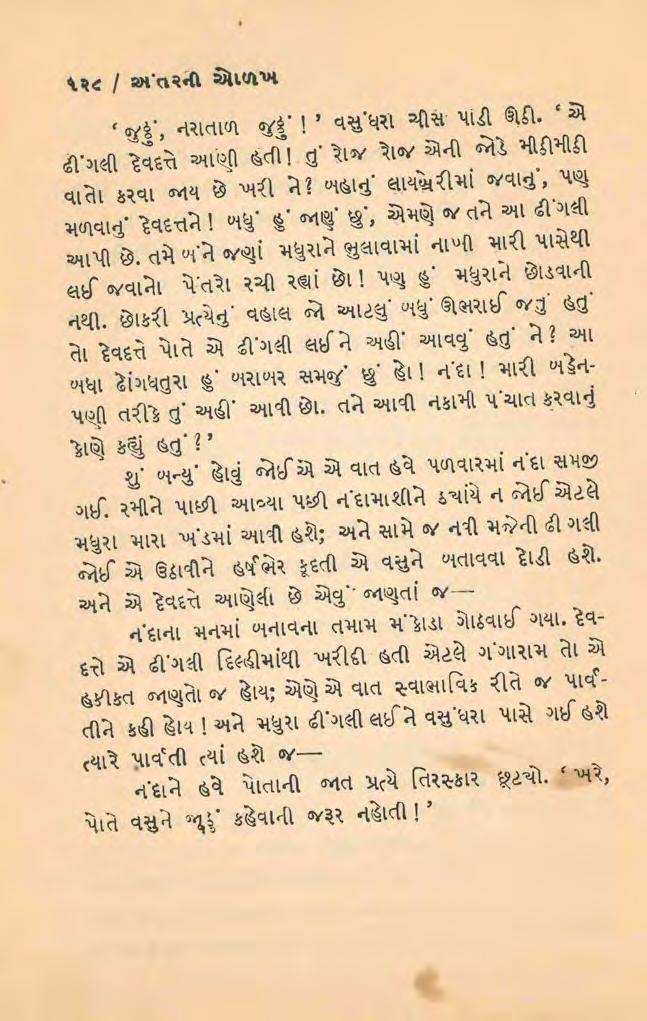 ૧૨૮ / અંતરની ઓળખ
‘ જુઠ્ઠું, નરાતાળ જુઠ્ઠું ! ’ વસુંધરા ચીસ પાડી ઊઠી. ‘ એ
ઢીંગલી દેવદત્તે આણી હતી! તું રોજ રોજ એની જોડે મીઠીમીઠી
વાતો કરવા જાય છે ખરી ને? બહાનું લાયબ્રેરીમાં જવાનું, પણ
મળવાનું દેવદત્તને! બધું હું જાણું છું, એમણે જ તને આ ઢીંગલી
આપી છે. તમે બંને જણાં મધુરાને ભુલાવામાં નાખી મારી પાસેથી
લઈ જવાનો પેંતરો રચી રહ્યાં છો! પણ હું મધુરાને છોડવાની
નથી. છોકરી પ્રત્યેનું વહાલ જો આટલું બધું ઊભરાઈ જતું હતું
તો દેવદત્તે પોતે એ ઢીંગલી લઈને અહીં આવવું હતું ને? આ
બધા ઢોંગધતુરા હું બરાબર સમજું છું હો! નંદા! મારી બહેન-
પણી તરીકે તું અહીં આવી છો. તને આવી નકામી પંચાત કરવાનું
કોણે કહ્યું હતું ?’
શું બન્યું હોવું જોઈએ એ વાત હવે પળવારમાં નંદા સમજી
ગઈ. રમીને પાછી આવ્યા પછી નંદામાશીને ક્યાંયે ન જોઈ એટલે
મધુરા મારા ખંડમાં આવી હશે; અને સામે જ નવી મઝેની ઢીંગલી
જોઈ એ ઉઠાવીને હર્ષભેર કૂદતી એ વસુને બતાવવા દોડી હશે.
અને એ દેવદત્તે આણેલી છે એવું જાણતાં જ—
નંદાના મનમાં બનાવના તમામ મંકોડા ગોઠવાઈ ગયા. દેવ-
દત્તે એ ઢીંગલી દિલ્હીમાંથી ખરીદી હતી એટલે ગંગારામ તો એ
હકીકત જાણતો જ હોય; એણે એ વાત સ્વાભાવિક રીતે જ પાર્વ-
તીને કહી હોય! અને મધુરા ઢીંગલી લઈને વસુંધરા પાસે ગઈ હશે
ત્યારે પાર્વતી ત્યાં હશે જ—
નંદાને હવે પોતાની જાત પ્રત્યે તિરસ્કાર છૂટ્યો. ‘ ખરે,
પોતે વસુને જૂઠ્ઠું કહેવાની જરૂર નહોતી! ’